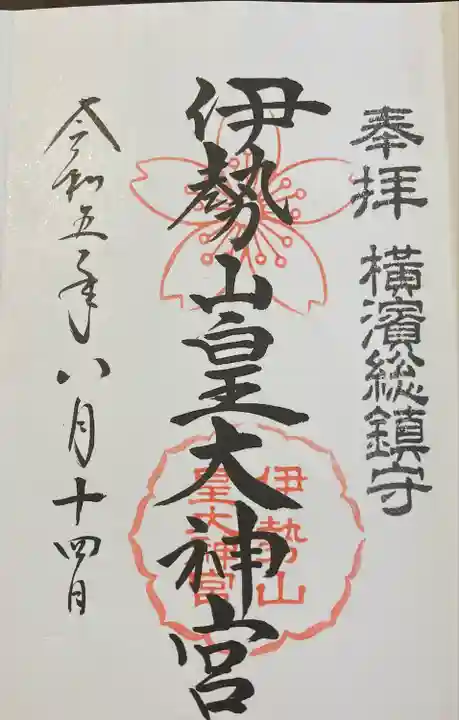 奉拝 横濱総鎮守
伊勢山皇大神宮
伊勢山
皇大神宮
令和五年八月十四日